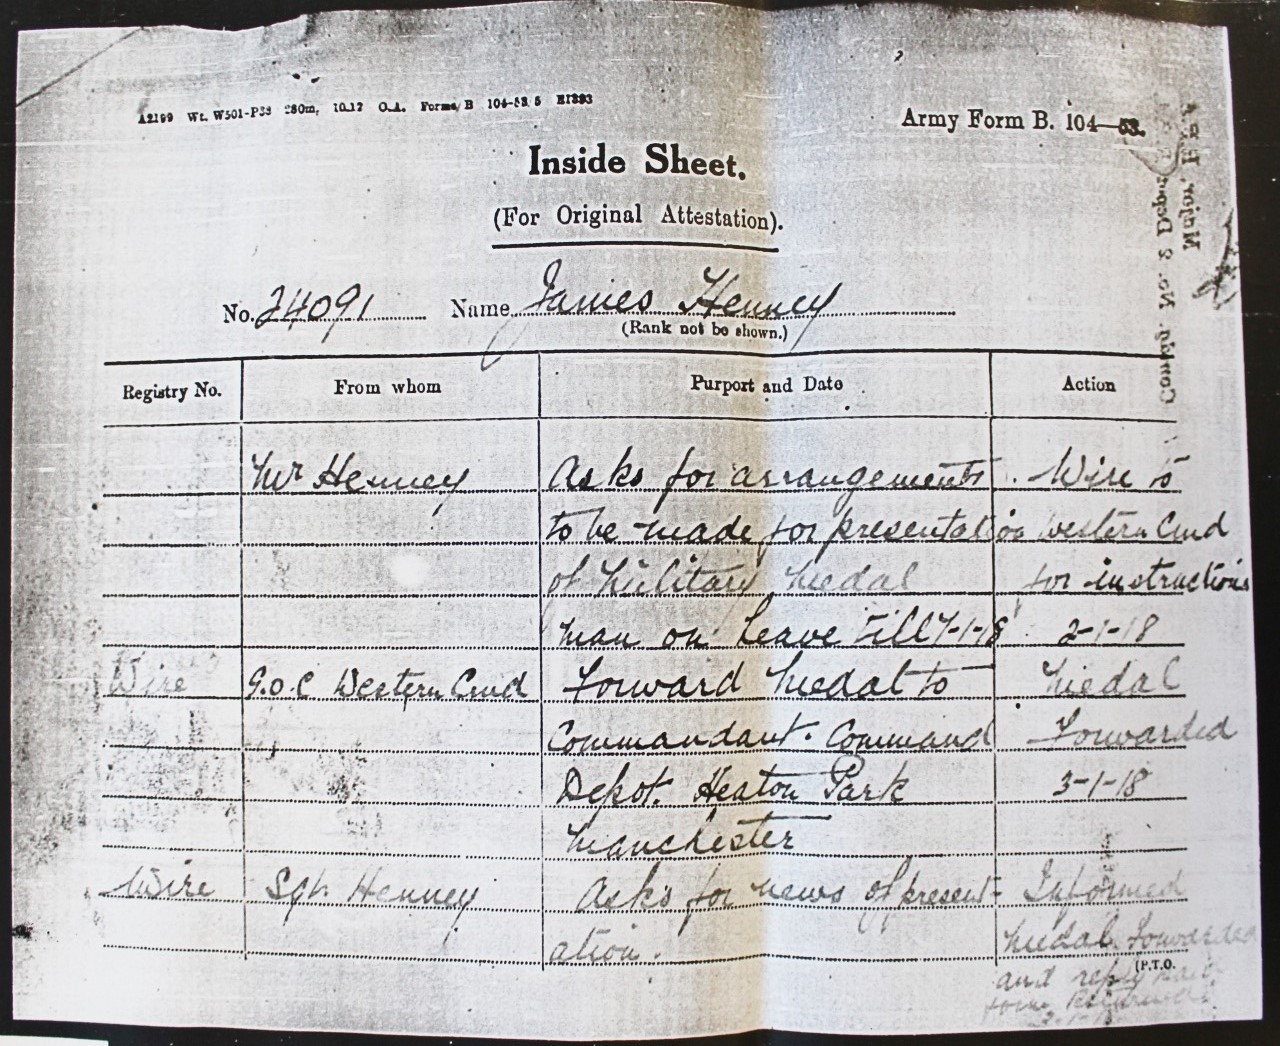 A2199 Wt. W501-P33 280m, 10.17 O.A. Forms/B 104-53 5 E1393
Army Form B. 104—53.
Inside Sheet.
(For Original Attestation).
No. 24091 Name James Henney
(Rank not be shown.)
Registry No. From whom Purport and Date Action
Mr Henney Asks for arrangements Wire to
to be made for presentation Western Cmd
of Military Medal for instructions
Man on Leave till 7-1-18 2-1-18
Wire G.O.C Western Cmd Forward Medal to Medal
Commandant. Command Forwarded
Depot. Heaton Park 3-1-18
Manchester
Wire Sgt. Henney Asks for news of present- Informed
ation. Medal Forwarded
(P.T.O.
and reply
Major,
Comdg. No. 2 Depot